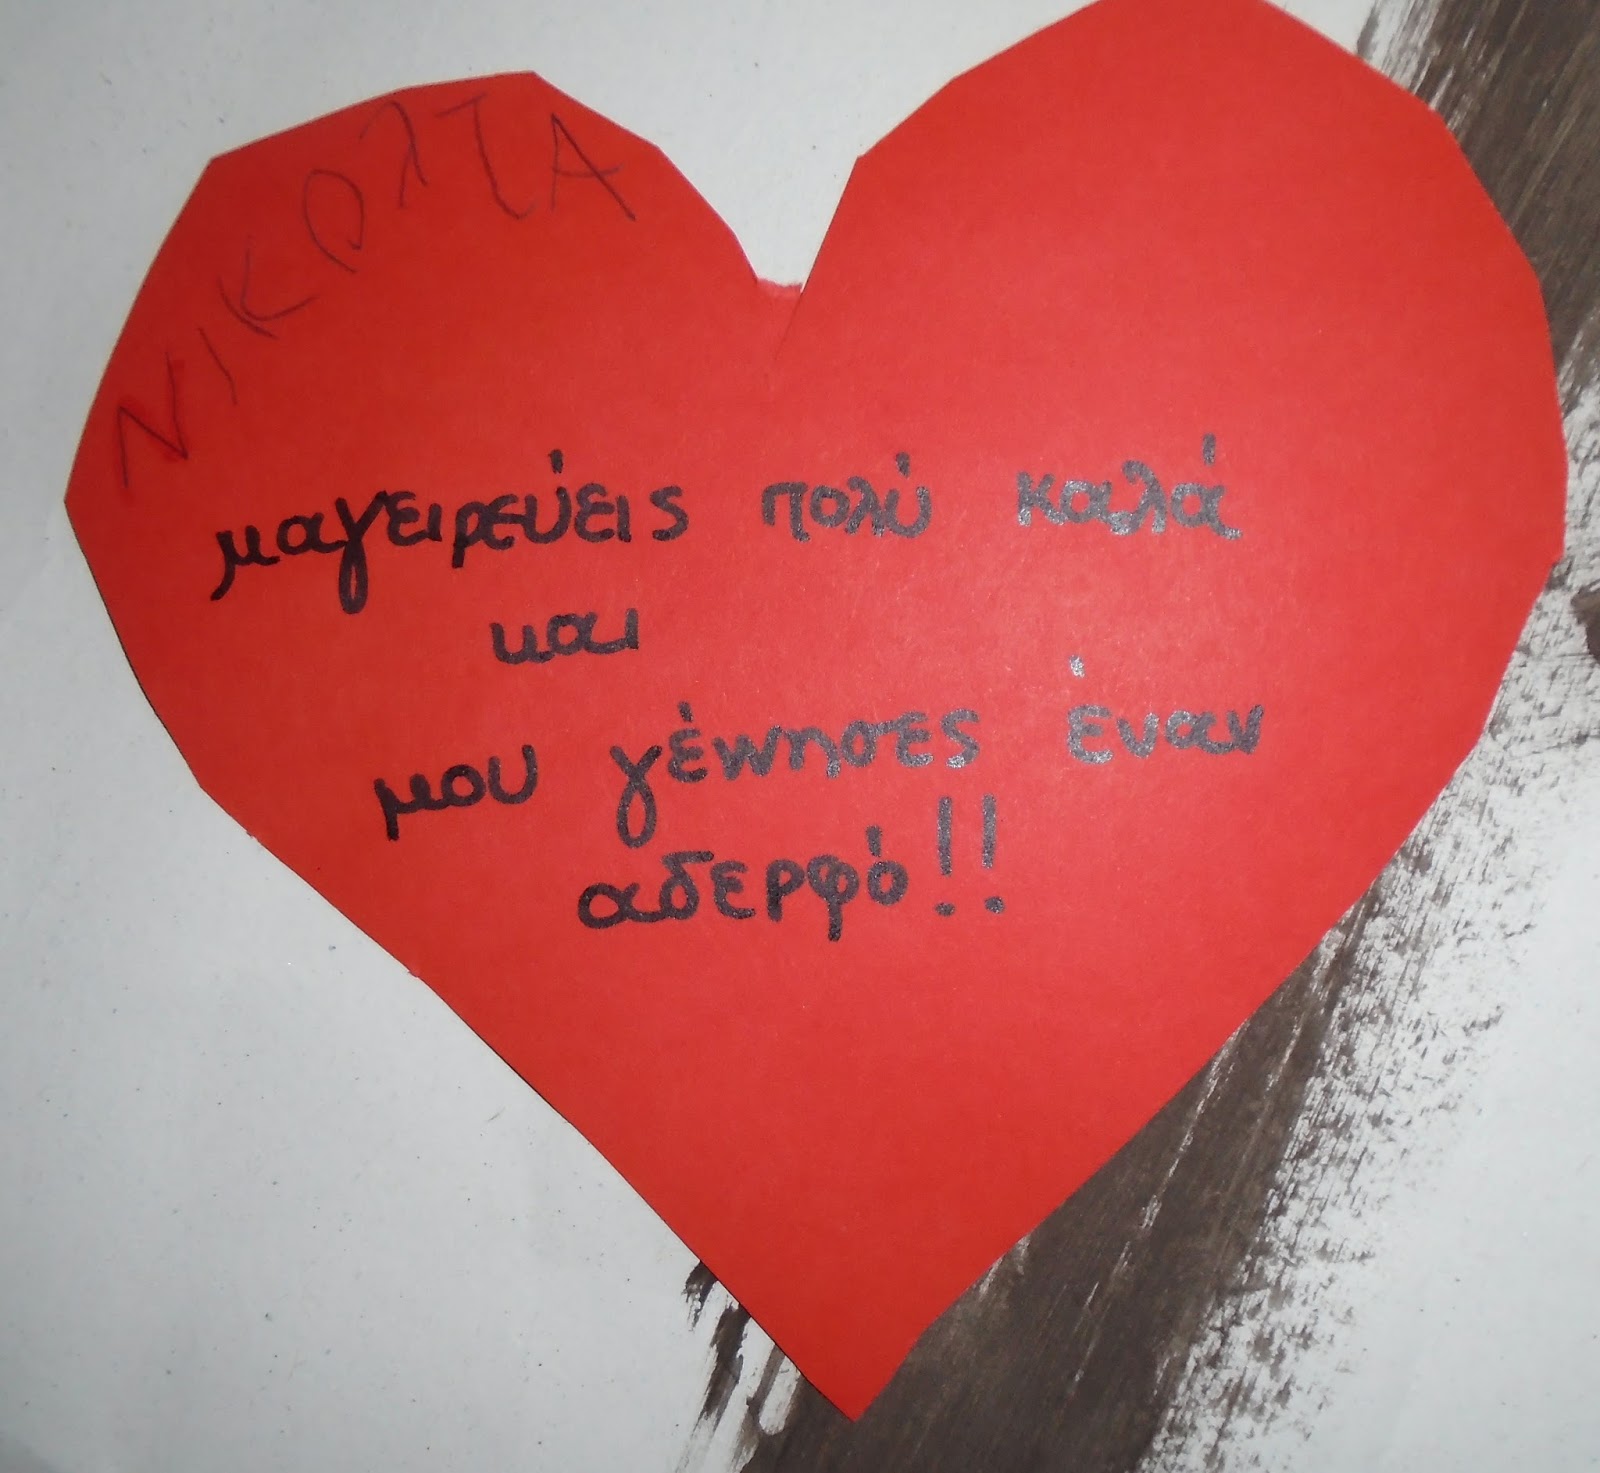 ΝΙΚΟλΤΑ
μαγειρεύεις πολύ καλά
και
μου γέννησες έναν
αδερφό!!